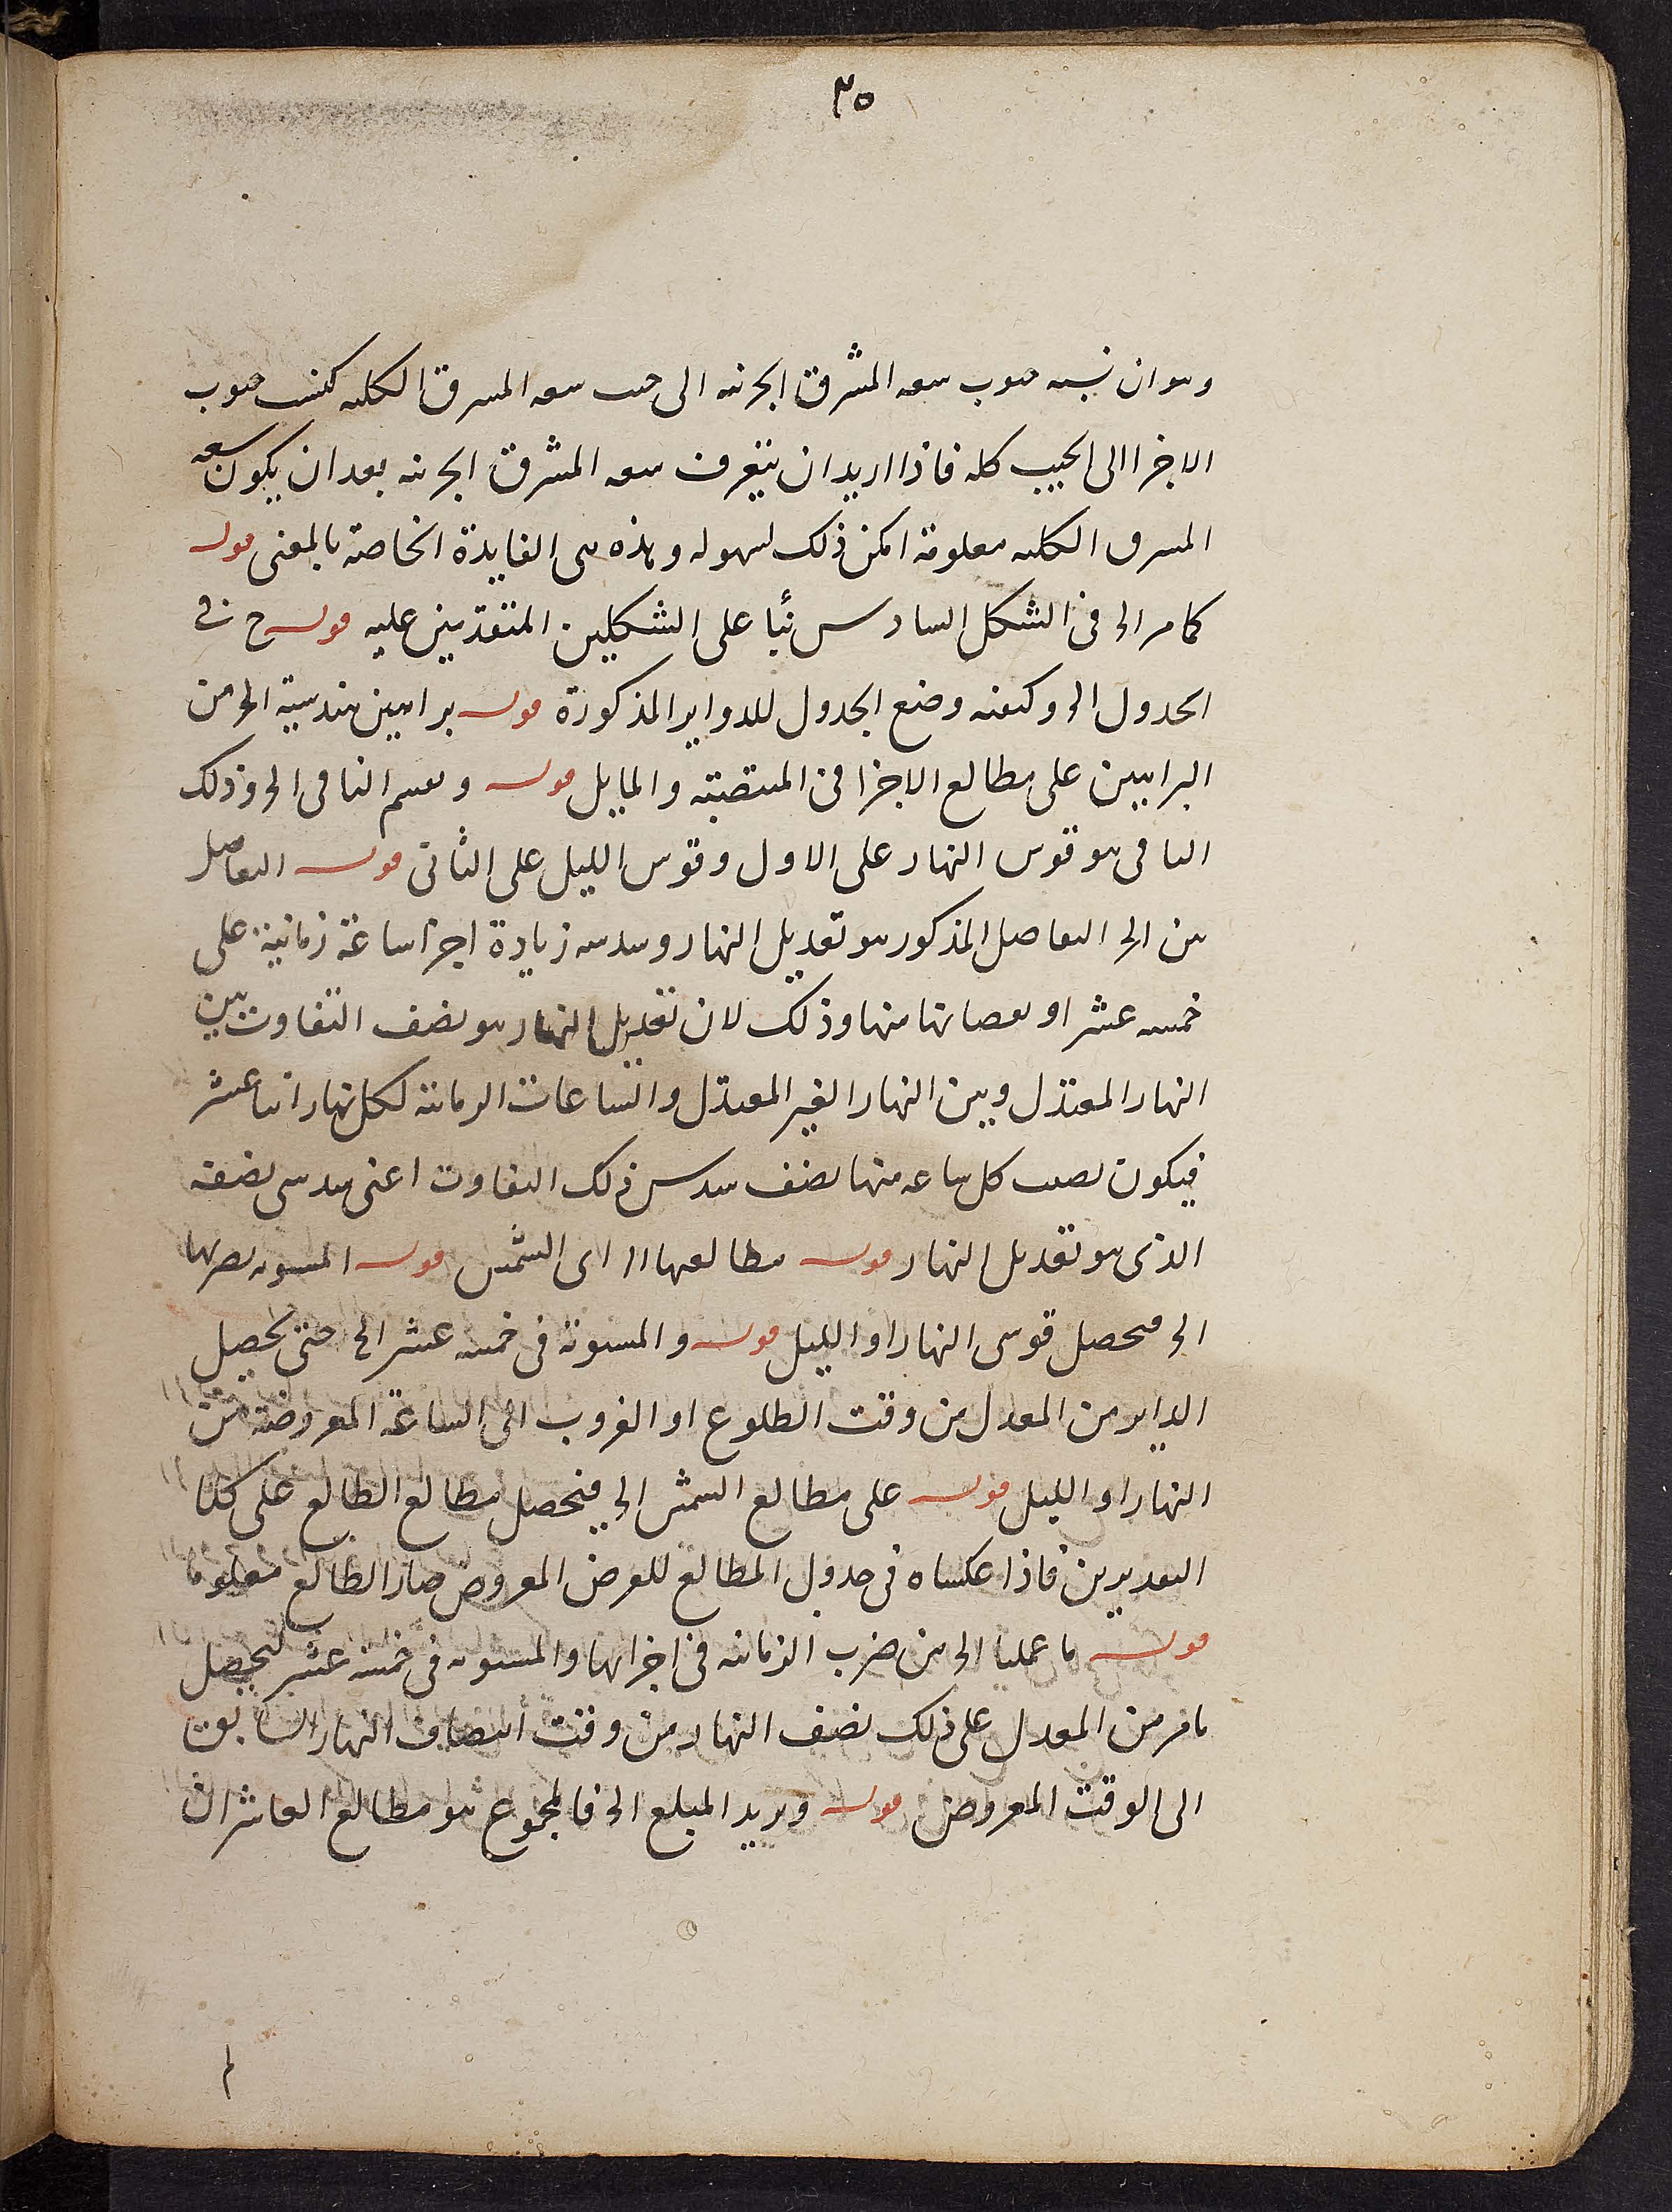 ٣٥
وهو ان نسبه جيوب سعه المشرق الجزئيه الى جيب سعه المشرق الكليه كنسبه جيوب
الاجزا الى الجيب كله فاذا اريد ان يتعرف سعه المشرق الجزئيه بعد ان يكون سعه
المشرق الكليه معلومة امكن ذلك بسهوله وهذه هى الفايدة الخاصة بالمغنى قوله
كما مر الى فى الشكل السادس على الشكلين المتقدمين عليه قوله ح فى
الجدول الى وكيفيه وضع الجدول للدواير المذكورة قوله براهين هندسية الى من
البراهين على مطالع الاجزا فى المنتصبة والمايل قوله ويقسم الباقى الى وذلك
الباقى هو قوس النهار على الاول وقوس الليل على الثانى قوله التفاضل
بين الى التفاضل المذكور هو تعديل النهار وسدسه زيادة اجزا ساعة زمانية على
خمسه عشر او نقصانها منها وذلك لان تعديل النهار هو نصف التفاوت بين
النهار المعتدل وبين النهار الغير المعتدل والساعات الزمانيه لكل نهار اثنا عشر
فيكون نصيب كل ساعه منها نصف سدس ذلك التفاوت اعنى سدس نصفه
الذى هو تعديل النهار قوله مطالعها اى الشمس قوله المستويه نضربها
الى فيحصل قوسى النهار او الليل قوله والمستوية فى خمسه عشر الى حتى يحصل
الداير من المعدل من وقت الطلوع او الغروب الى الساعة المفروضة من
النهار او الليل قوله على مطالع الشمس الى فيحصل مطالع الطالع على كلا
التقديرين فاذا عكسناه فى جدول المطالع للعرض المفروض صار الطالع معلوما
قوله ما عملنا الى من ضرب الزمانيه فى اجزائها والمستويه فى خمسه عشر ليحصل
ما مر من المعدل على ذلك نصف النهار من وقت انتصاف النهار السابق
الى الوقت المفروض قوله ويزيد المبلغ الى فالمجموع هو مطالع العاشر ان